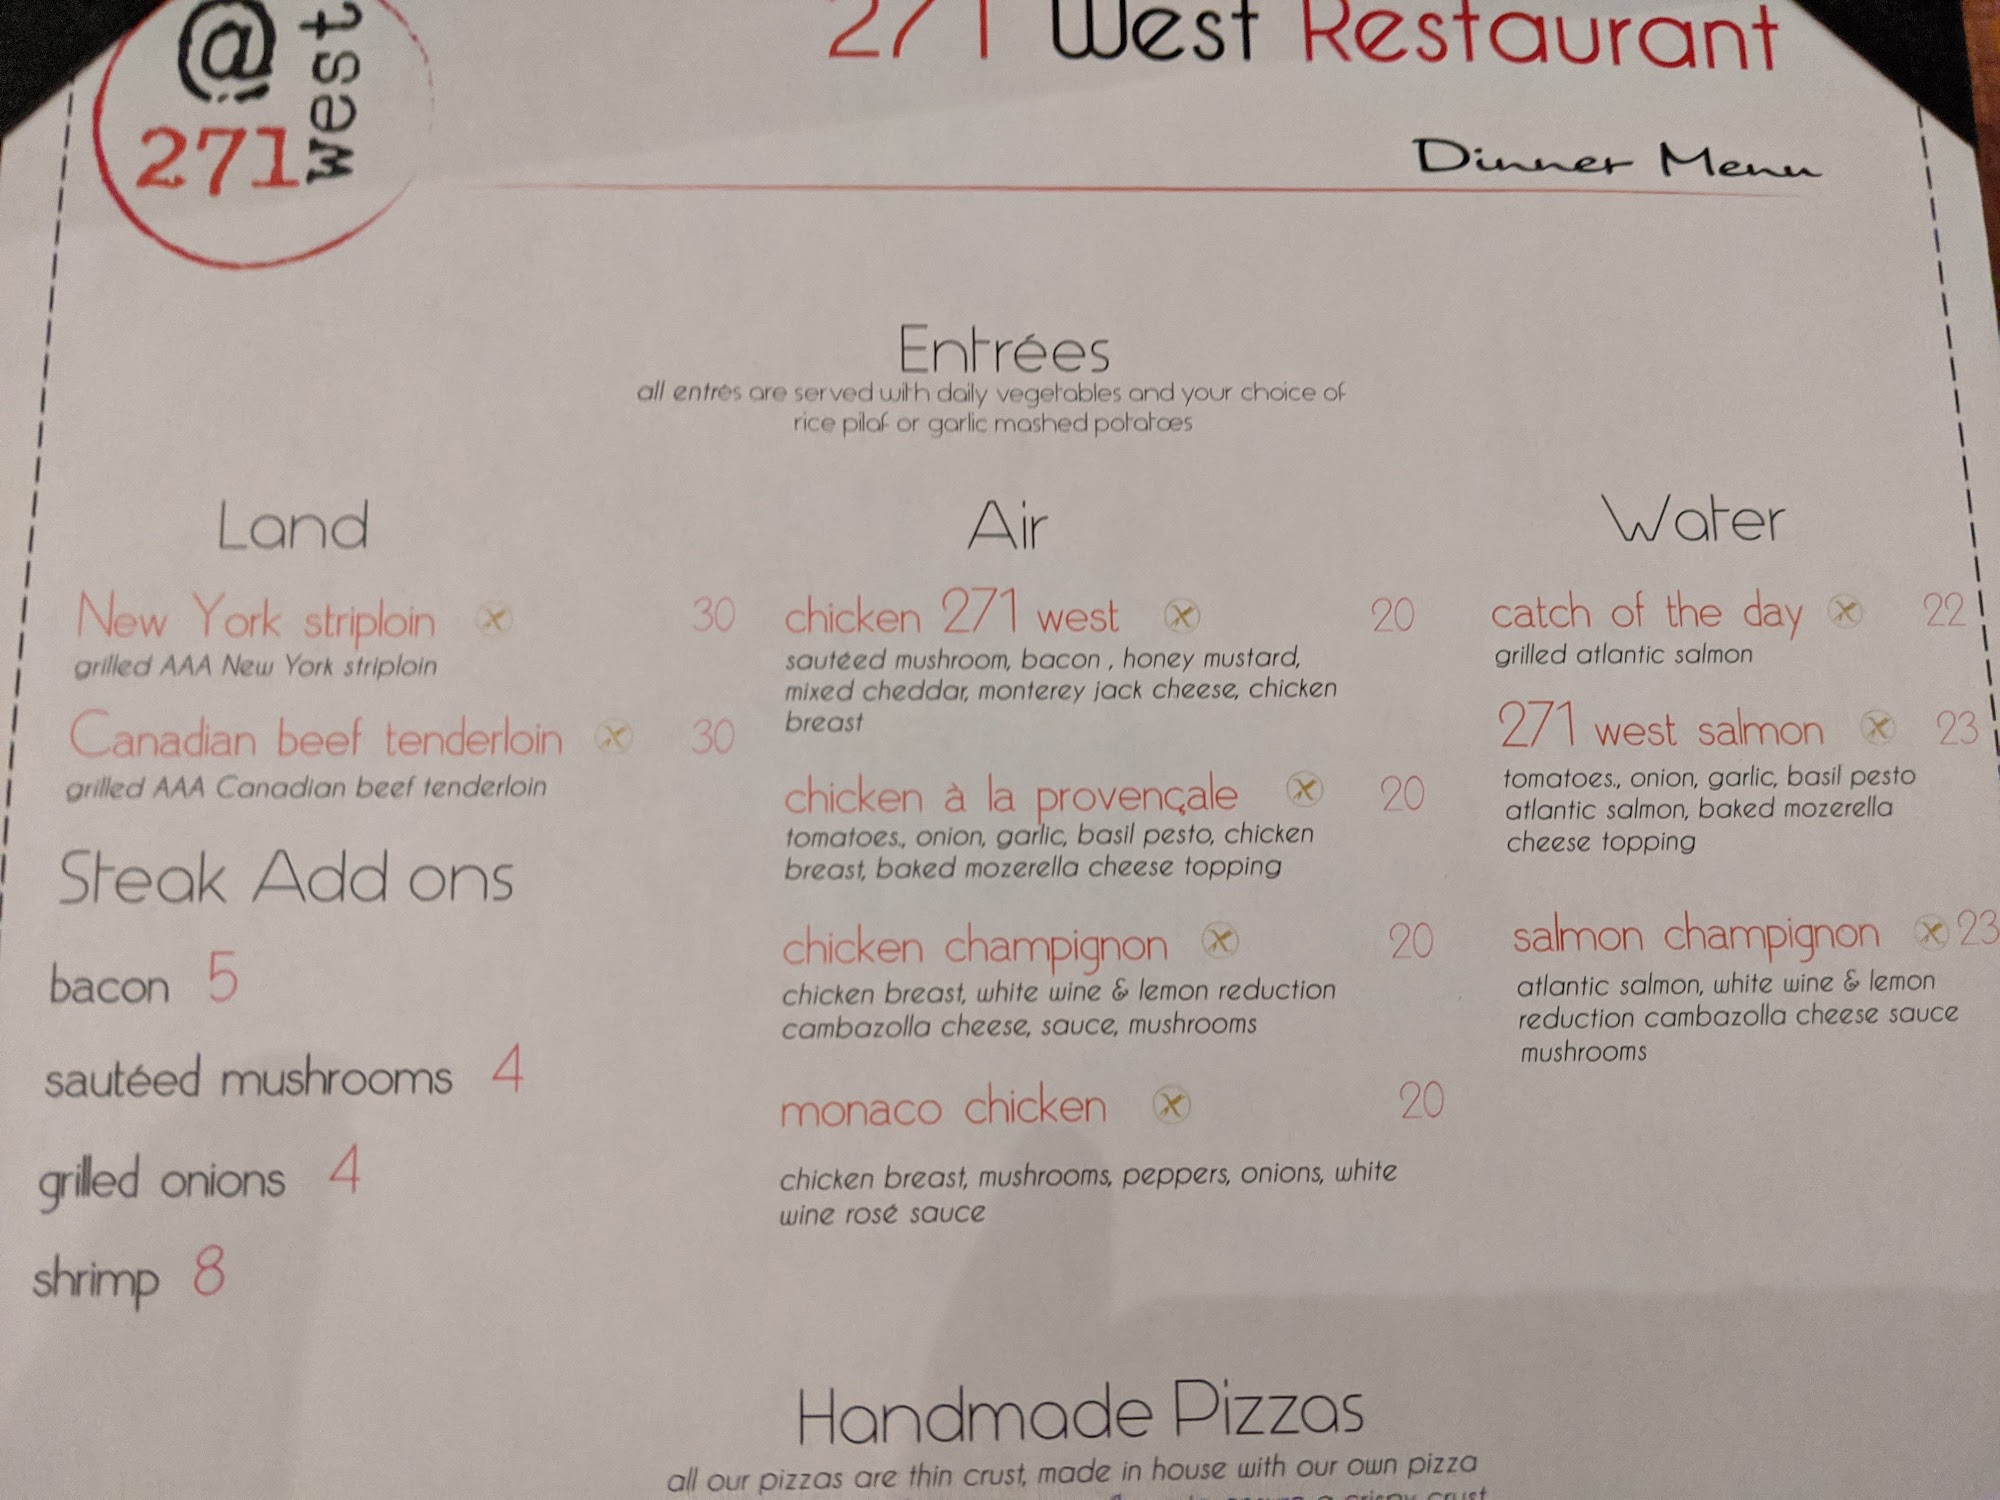 @
271
west
271 West Restaurant
Dinner Menu
Entrées
all entrés are served with daily vegetables and your choice of
rice pilaf or garlic mashed potatoes
Land
New York striploin 30
grilled AAA New York striploin
Canadian beef tenderloin 30
grilled AAA Canadian beef tenderloin
Steak Add ons
bacon 5
sautéed mushrooms 4
grilled onions 4
shrimp 8
Air
chicken 271 west 20
sautéed mushroom, bacon , honey mustard,
mixed cheddar, monterey jack cheese, chicken
breast
chicken à la provençale 20
tomatoes., onion, garlic, basil pesto, chicken
breast, baked mozerella cheese topping
chicken champignon 20
chicken breast, white wine & lemon reduction
cambazolla cheese, sauce, mushrooms
monaco chicken 20
chicken breast, mushrooms, peppers, onions, white
wine rosé sauce
Water
catch of the day 22
grilled atlantic salmon
271 west salmon 23
tomatoes., onion, garlic, basil pesto
atlantic salmon, baked mozerella
cheese topping
salmon champignon 23
atlantic salmon, white wine & lemon
reduction cambazolla cheese sauce
mushrooms
Handmade Pizzas
all our pizzas are thin crust, made in house with our own pizza
a crispy crust